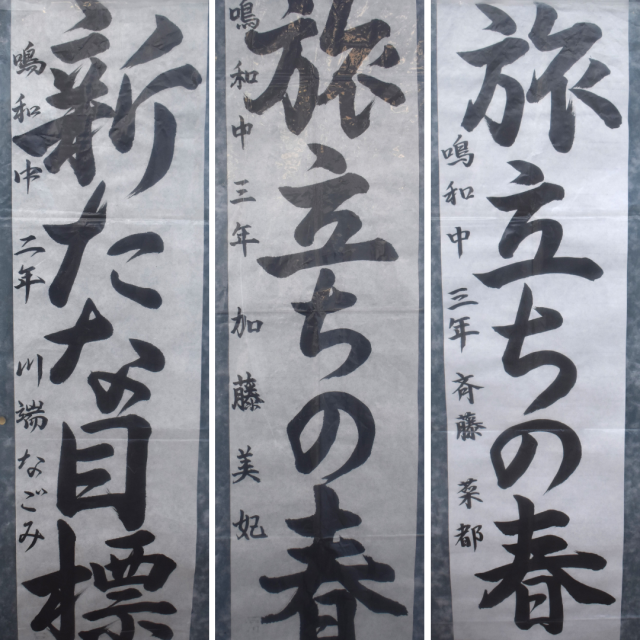 新たな目標
鳴和中 二年 川端なごみ
旅立ちの春
鳴和中 三年 加藤美妃
旅立ちの春
鳴和中 三年 斉藤菜都